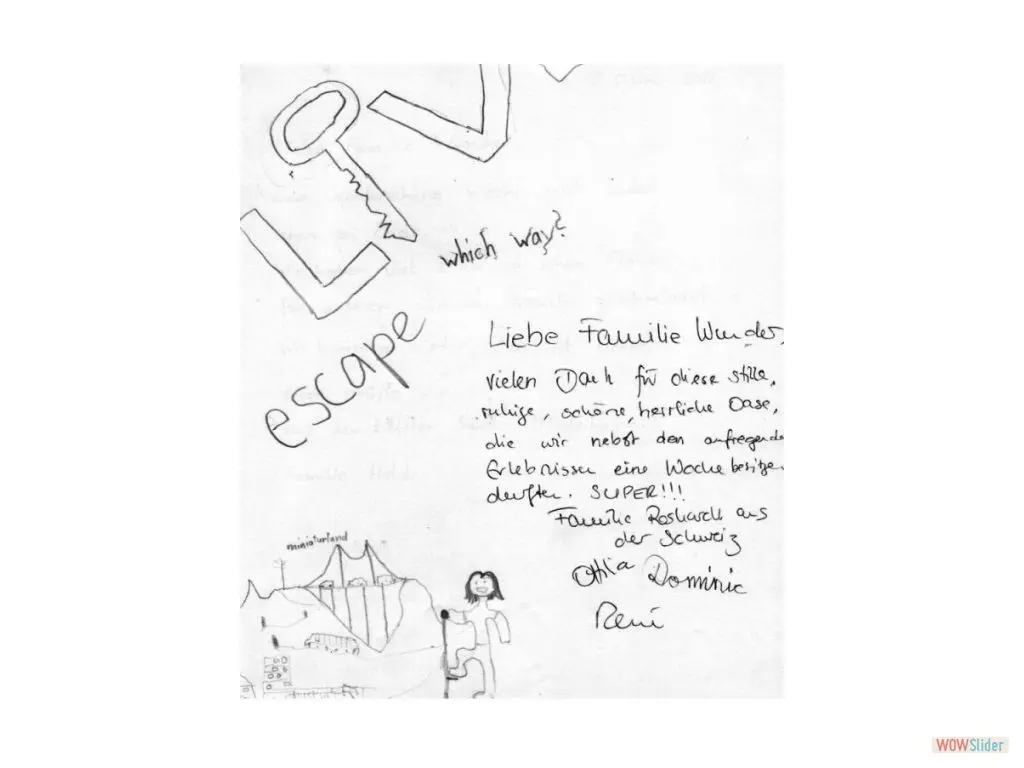 LOV
which way?
escape
Liebe Familie Wunder,
vielen Dank für diese stille,
ruhige, schöne, herrliche Oase,
die wir nebst den aufregende
Erlebnissen eine Woche besitze
durften. SUPER!!!
Familie aus
der Schweiz
Otilia Dominic
René
miniaturland
WOWSlider